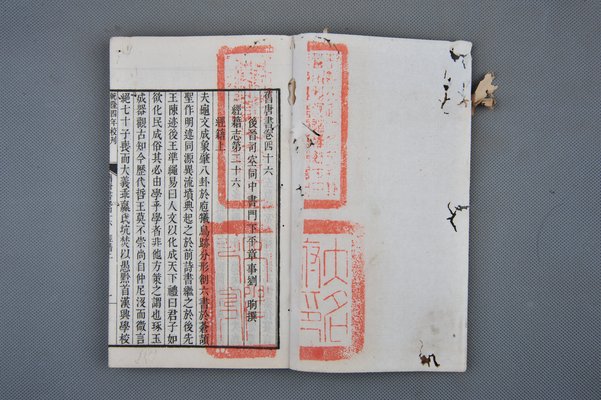 舊唐書卷四十六
後晉司空同中書門下平章事劉昫撰
經籍志第二十六
經籍上
夫龜文成象肇八卦於庖犧鳥跡分形創六書於蒼頡
聖作明述同源異流墳典起之於前詩書繼之於後先
王陳迹後王準繩易曰人文以化成天下禮曰君子如
欲化民成俗其必由學乎學者非他方策之謂也琢玉
成器觀古知今歷代哲王莫不崇尚自仲尼沒而微言
絕七十子喪而大義乖嬴氏坑焚以愚黔首漢興學校
乾隆四年校刊